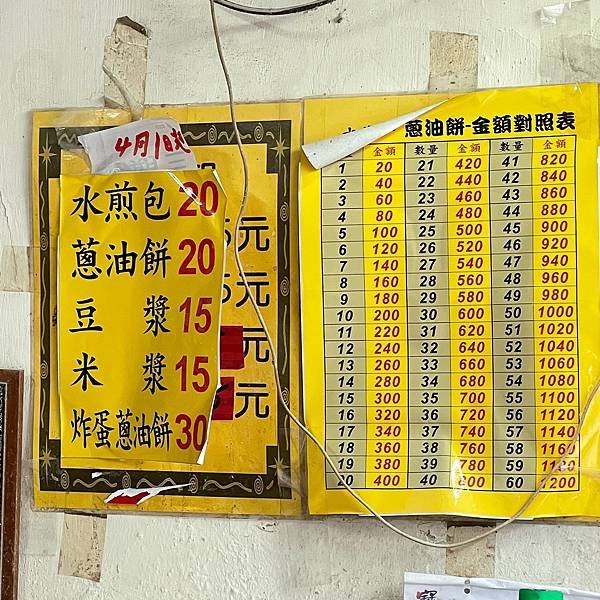 4月1日起
水煎包20
蔥油餅20
豆漿15
米漿15
炸蛋蔥油餅30
元
元
元
元
蔥油餅-金額對照表
金額 數量 金額 數量 金額
1 20 21 420 41 820
2 40 22 440 42 840
3 60 23 460 43 860
4 80 24 480 44 880
5 100 25 500 45 900
6 120 26 520 46 920
7 140 27 540 47 940
8 160 28 560 48 960
9 180 29 580 49 980
10 200 30 600 50 1000
11 220 31 620 51 1020
12 240 32 640 52 1040
13 260 33 660 53 1060
14 280 34 680 54 1080
15 300 35 700 55 1100
16 320 36 720 56 1120
17 340 37 740 57 1140
18 360 38 760 58 1160
19 380 39 780 59 1180
20 400 40 800 60 1200